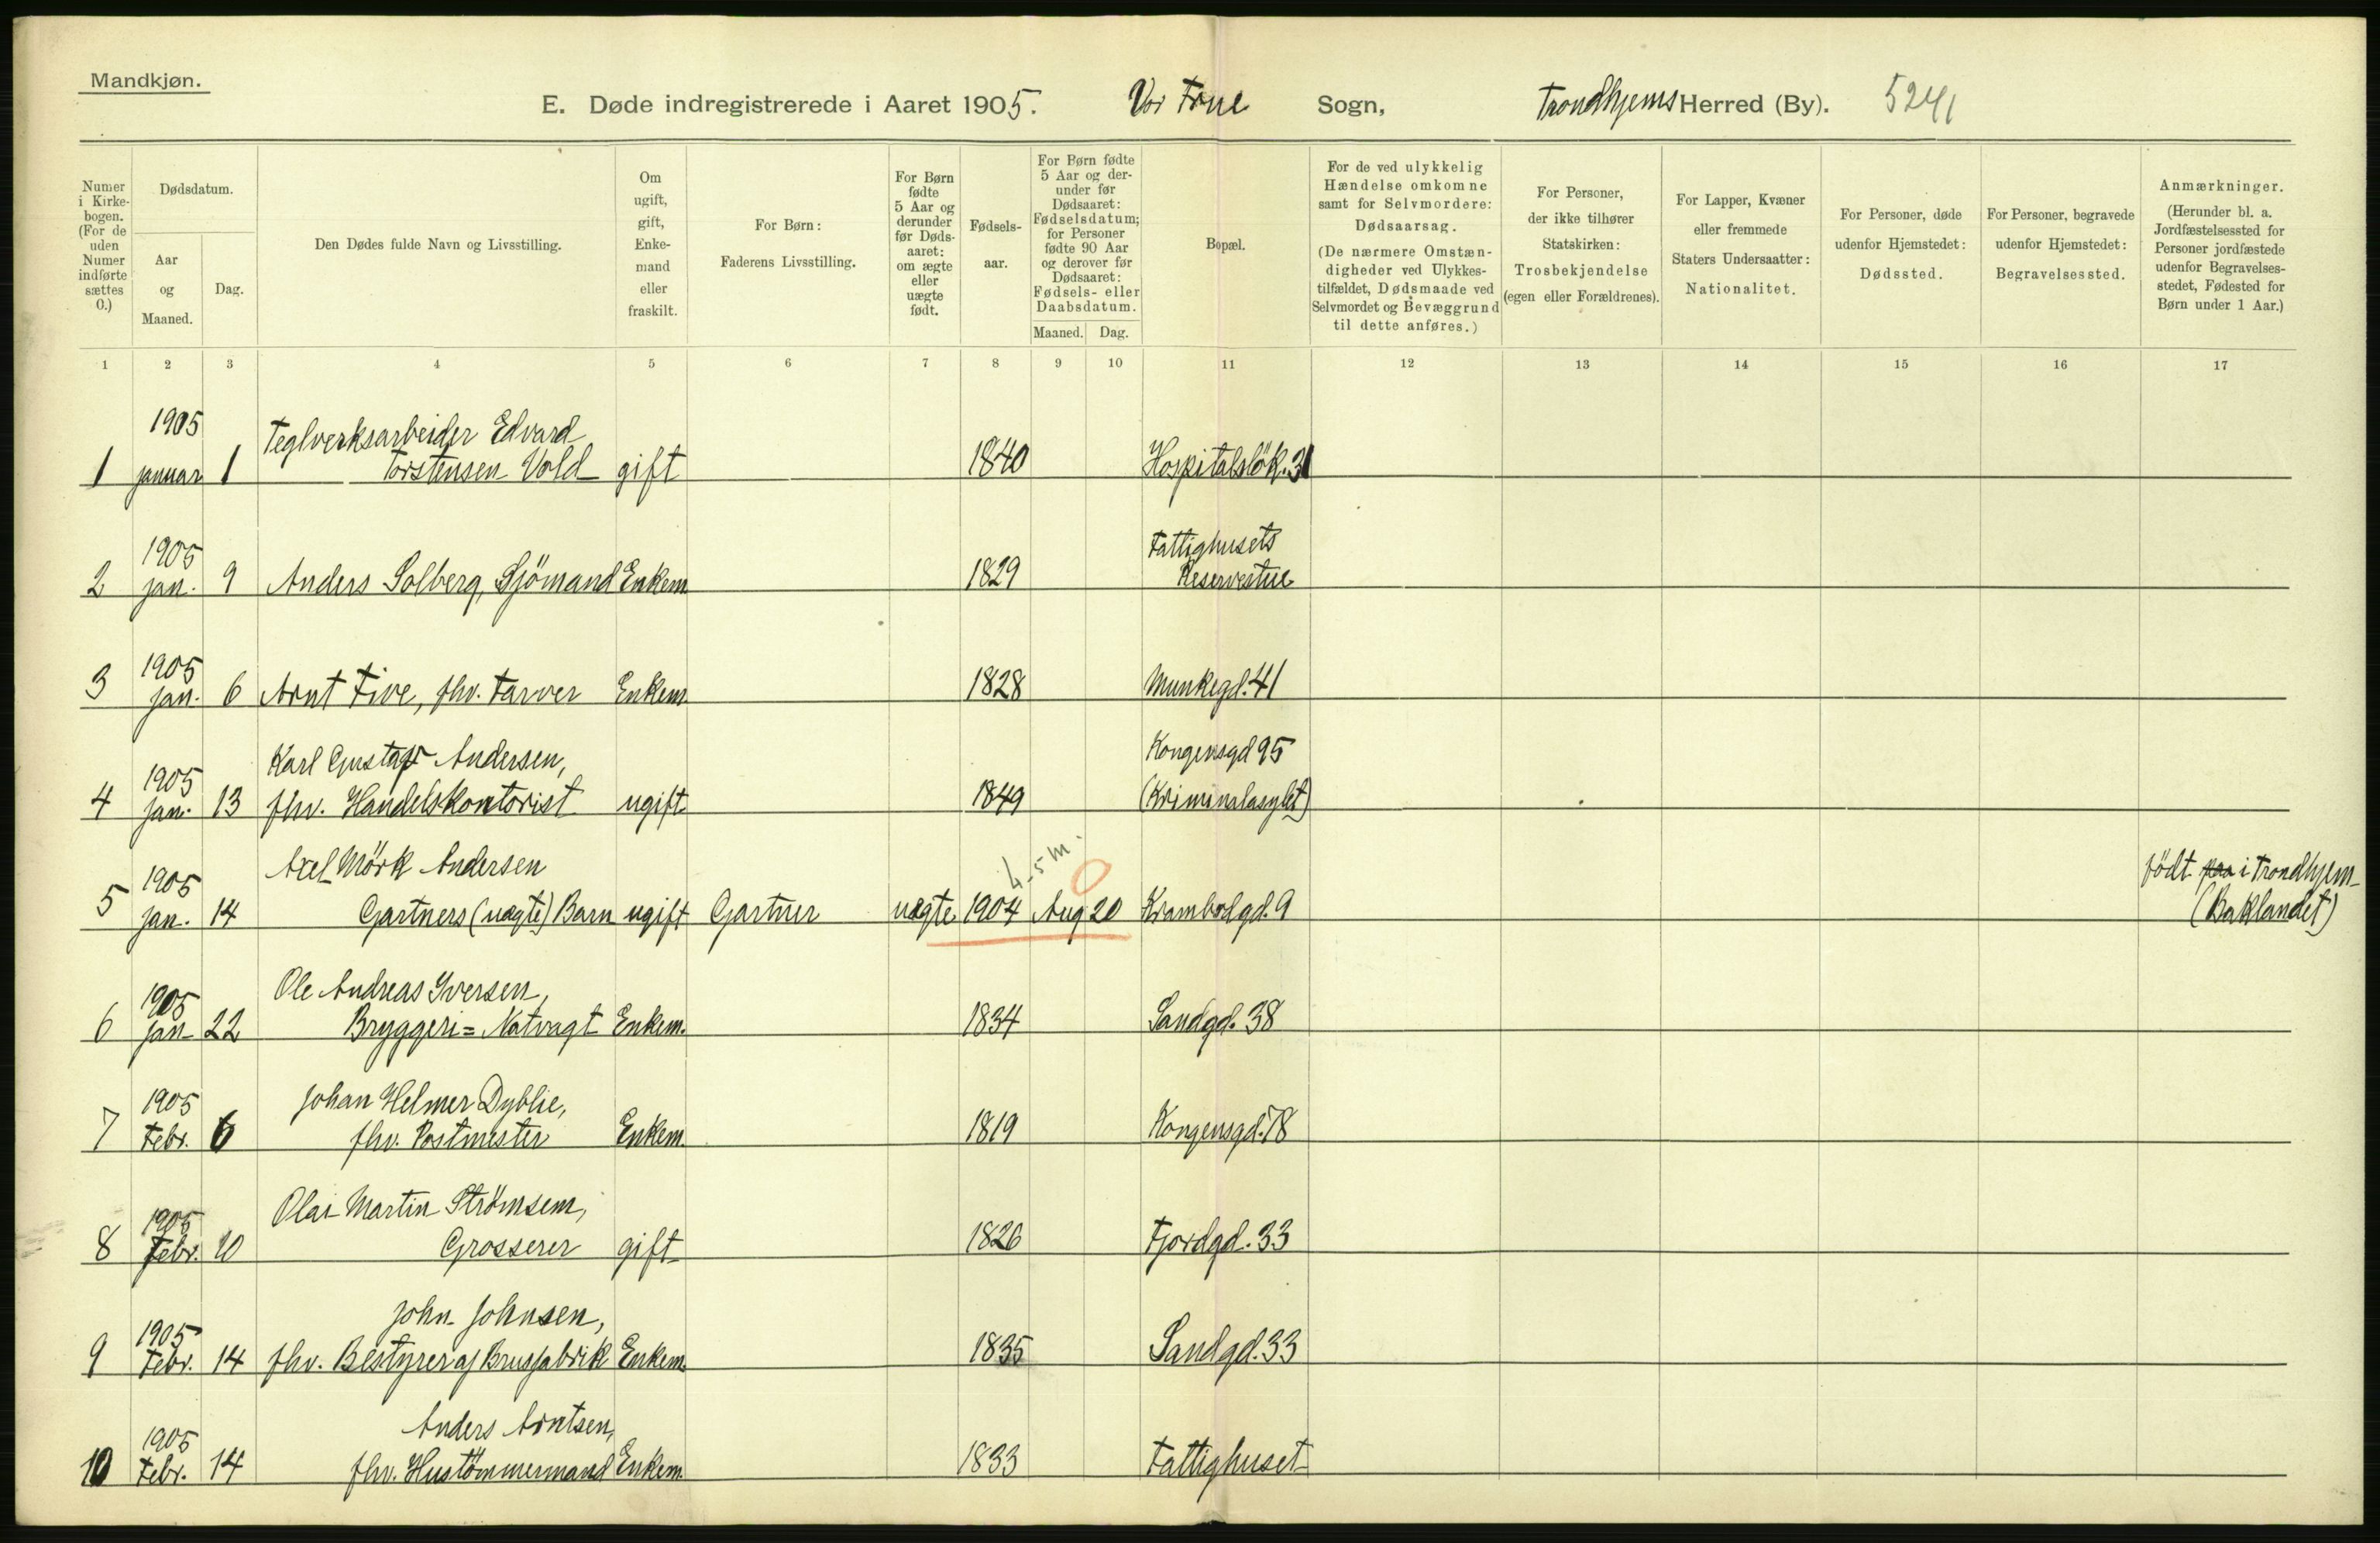 Mandkjøn.
E. Døde indregistrerede i Aaret 1905. Vor Frue Sogn, Trondhjems Herred (By). 5241
Numer
i Kirke-
bogen.
(For de
uden
Numer
indførte
sættes
0.)
Dødsdatum.
Aar
og
Maaned.
Dag.
Den Dødes fulde Navn og Livsstilling.
Om
ugift,
gift,
Enke-
mand
eller
fraskilt.
For Børn:
Faderens Livsstilling.
For Børn
fødte
5 Aar og
derunder
før Døds-
aaret:
om ægte
eller
uægte
født.
Fødsels-
aar.
For Børn fødte
5 Aar og der-
under før
Dødsaaret:
Fødselsdatum;
for Personer
fødte 90 Aar
og derover før
Dødsaaret:
Fødsels- eller
Daabsdatum.
Maaned. Dag.
Bopæl.
For de ved ulykkelig
Hændelse omkomne
samt for Selvmordere:
Dødsaarsag.
(De nærmere Omstæn-
digheder ved Ulykkes-
tilfældet, Dødsmaade ved
Selvmordet og Bevæggrund
til dette anføres.)
For Personer,
der ikke tilhører
Statskirken:
Trosbekjendelse
(egen eller Forældrenes).
For Lapper, Kvæner
eller fremmede
Staters Undersaatter:
Nationalitet.
For Personer, døde
udenfor Hjemstedet:
Dødssted.
For Personer, begravede
udenfor Hjemstedet:
Begravelsessted.
Anmærkninger.
(Herunder bl. a.
Jordfæstelsessted for
Personer jordfæstede
udenfor Begravelses-
stedet, Fødested for
Børn under 1 Aar.)
1 2 3 4 5 6 7 8 9 10 11 12 13 14 15 16 17
1905 Teglverksarbeider Edvard
1 januar 1 Torstensen Vold gift 1840 Hospitalsløk. 31
1905 Fattighusets
2 jan. 9 Anders Solberg, Sjömand Enkem. 1829 Reservestue
1905
3 jan. 6 Arnt Five, fhv. Farver Enkem. 1828 Munkegd. 41
1905 Karl Gustav Andersen, Kongensgd 95
4 jan. 13 fhv. Handelskontorist ugift 1849 (Kriminalasylet)
1905 Axel Mörk Andersen 4-5 m. 0 födt paa i Trondhjem
5 jan. 14 Gartners (uægte) Barn ugift Gartner uægte 1904 Aug 20 Krambodgd. 9 (Baklandet)
1905 Ole Andreas Iversen,
6 jan 22 Bryggeri= Natvagt Enkem. 1834 Sandgd. 38
1905 Johan Helmer Dyblie,
7 Febr. 6 fhv. Postmester Enkem. 1819 Kongensgd. 78
1905 Olai Martin Strömsem,
8 Febr. 10 Grosserer gift 1826 Fjordgd. 33
1905 John Johnsen,
9 Febr. 14 fhv. Bestyrer af Brusfabrik Enkem. 1835 Sandgd. 33
1905 Anders Arntsen,
10 Febr. 14 fhv. Hustömmermand Enkem. 1833 Fattighuset